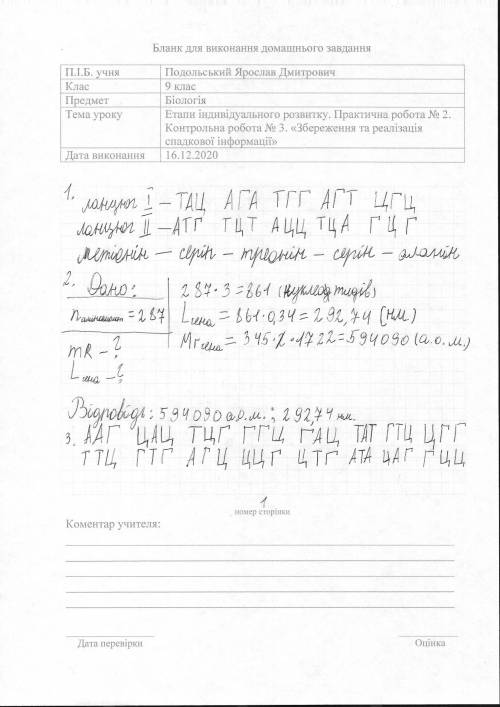 Бланк для виконання домашнього завдання
П.І.Б. учня Подольський Ярослав Дмитрович
Клас 9 клас
Предмет Біологія
Тема уроку Етапи індивідуального розвитку. Практична робота № 2.
Контрольна робота № 3. «Збереження та реалізація
спадкової інформації»
Дата виконання 16.12.2020
1. ланцюг I – ТАЦ АГА ТГГ АГТ ЦГЦ
ланцюг II – АТГ ТЦТ АЦЦ ТЦА ГЦГ
метіонін – серін – треонін – серін – аланін
2. Дано:
n амінокислот = 287
mR – ?
L гена – ?
287·3=861 (нуклеотидів)
L гена = 861·0,34=292,74 (нм)
Mr гена = 345·2·1722=594090 (а.о.м.)
Відповідь: 594090 а.о.м.; 292,74 нм.
3. ААГ ЦАЦ ТЦГ ГГЦ ГАЦ ТАТ ГТЦ ЦГГ
ТТЦ ГТГ АГЦ ЦЦГ ЦТГ АТА ЦАГ ГЦЦ
1
номер сторінки
Коментар учителя:
Дата перевірки Оцінка